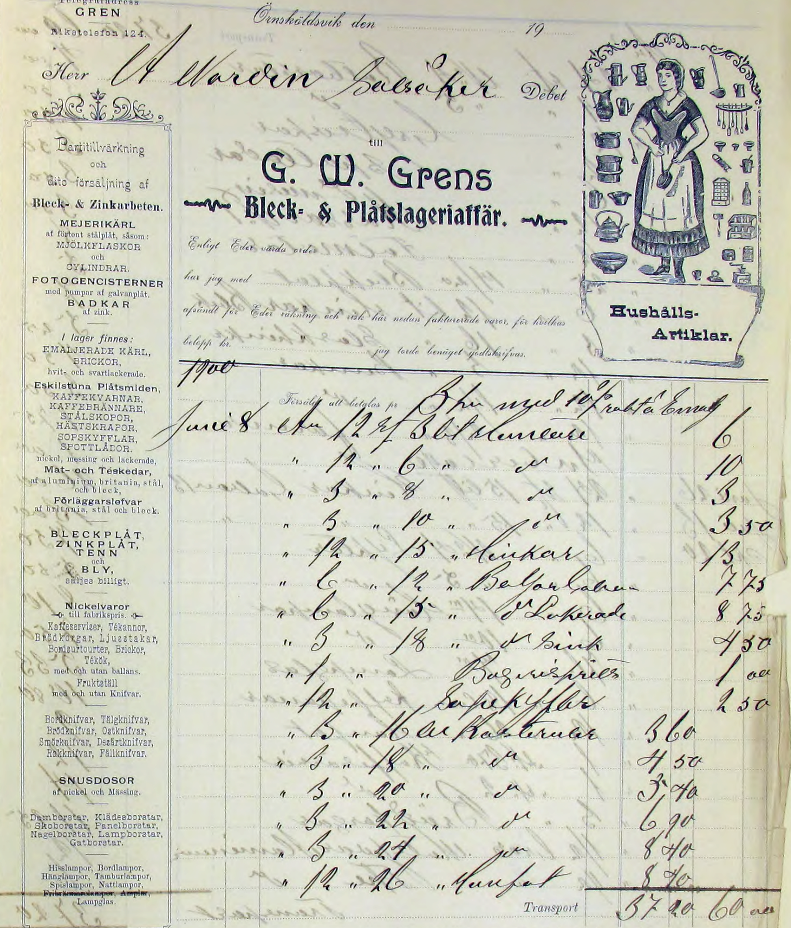 Telegramadress
GREN
Rikstelefon 124.
Örnsköldsvik den 19
Herr A Nordin Salsåker Debet
till
G. W. Grens
Bleck- & Plåtslageriaffär.
Enligt Eder värda order
har jag med
afsändt för Eder räkning och risk här nedan fakturerade varor, för hvilkas
belopp kr. jag torde benäget godtskrifvas.
Hushålls-
Artiklar.
Partitillvärkning
och
dito försäljning af
Bleck- & Zinkarbeten.
MEJERIKÄRL
af förtent stålplåt, såsom:
MJÖLKFLASKOR
och
CYLINDRAR.
FOTOGENCISTERNER
med pumpar af galvanplåt.
BADKAR
af zink.
I lager finnes:
EMALJERADE KÄRL,
BRICKOR,
hvit- och svartlackerade.
Eskilstuna Plåtsmiden,
KAFFEKVARNAR,
KAFFEBRÄNNARE,
STÅLSKOPOR,
HÄSTSKRAPOR,
SOFSKYFFLAR,
SPOTTLÅDOR,
nickel, messing och lackerade,
Mat- och Teskedar,
af aluminium, britania, stål,
och bleck,
Förläggarslefvar
af britania, stål och bleck.
BLECKPLÅT,
ZINKPLÅT,
TENN
och
BLY,
säljes billigt.
Nickelvaror
till fabrikspris.
Kaffeserviser, Tékannor,
Brödkorgar, Ljusstakar,
Bordsurtourter, Brickor,
Tékök,
med och utan ballans.
Fruktställ
med och utan Knifvar.
Bordknifvar, Tälgknifvar,
Brödknifvar, Ostknifvar,
Smörknifvar, Desärtknifvar,
Hakknifvar, Fällknifvar.
SNUSDOSOR
af nickel och Mässing.
Damborstar, Klädseborstar,
Skoborstar, Panelborstar,
Nagelborstar, Lampborstar,
Gatborstar.
Hisslampor, Bordlampor,
Hänglampor, Tamburlampor,
Spislampor, Nattlampor,
Lampglas.
1900
Försåldt att betalas pr 3 med 10 % rabatt å Emalj
Junie 8 An 12 st 3 lit 6
" 12 " 6 " do 10
" 3 " 8 " do 3
" 3 " 10 " do 3 50
" 12 " 15 " Hinkar 13
" 6 " 12 " 7 75
" 6 " 15 " do Lakerade 8 75
" 3 " 18 " do Sink 4 50
" 1 " 1 00
" 12 " 2 50
" 3 " 16 Kastruler 3 60
" 3 " 18 " do 4 50
" 3 " 20 " do 5 40
" 3 " 22 " do 6 90
" 3 " 24 " do 8 40
" 12 " 26 " 8 40
Transport 37 20 60 00